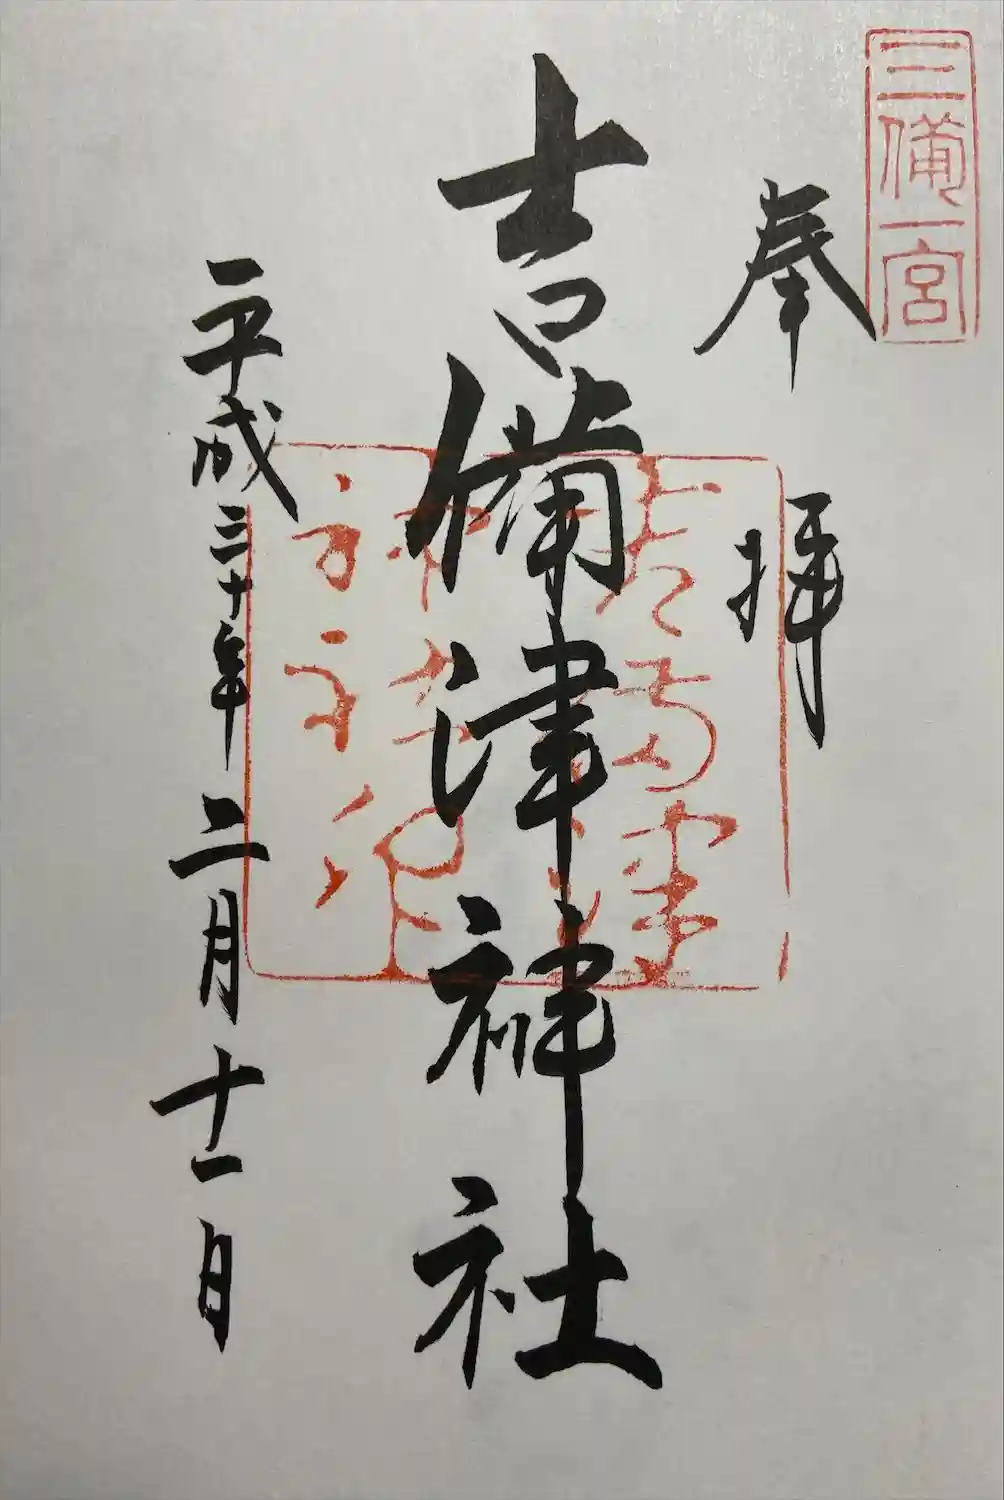 三備一宮
奉拝
吉備津神社
平成三十年二月十一日